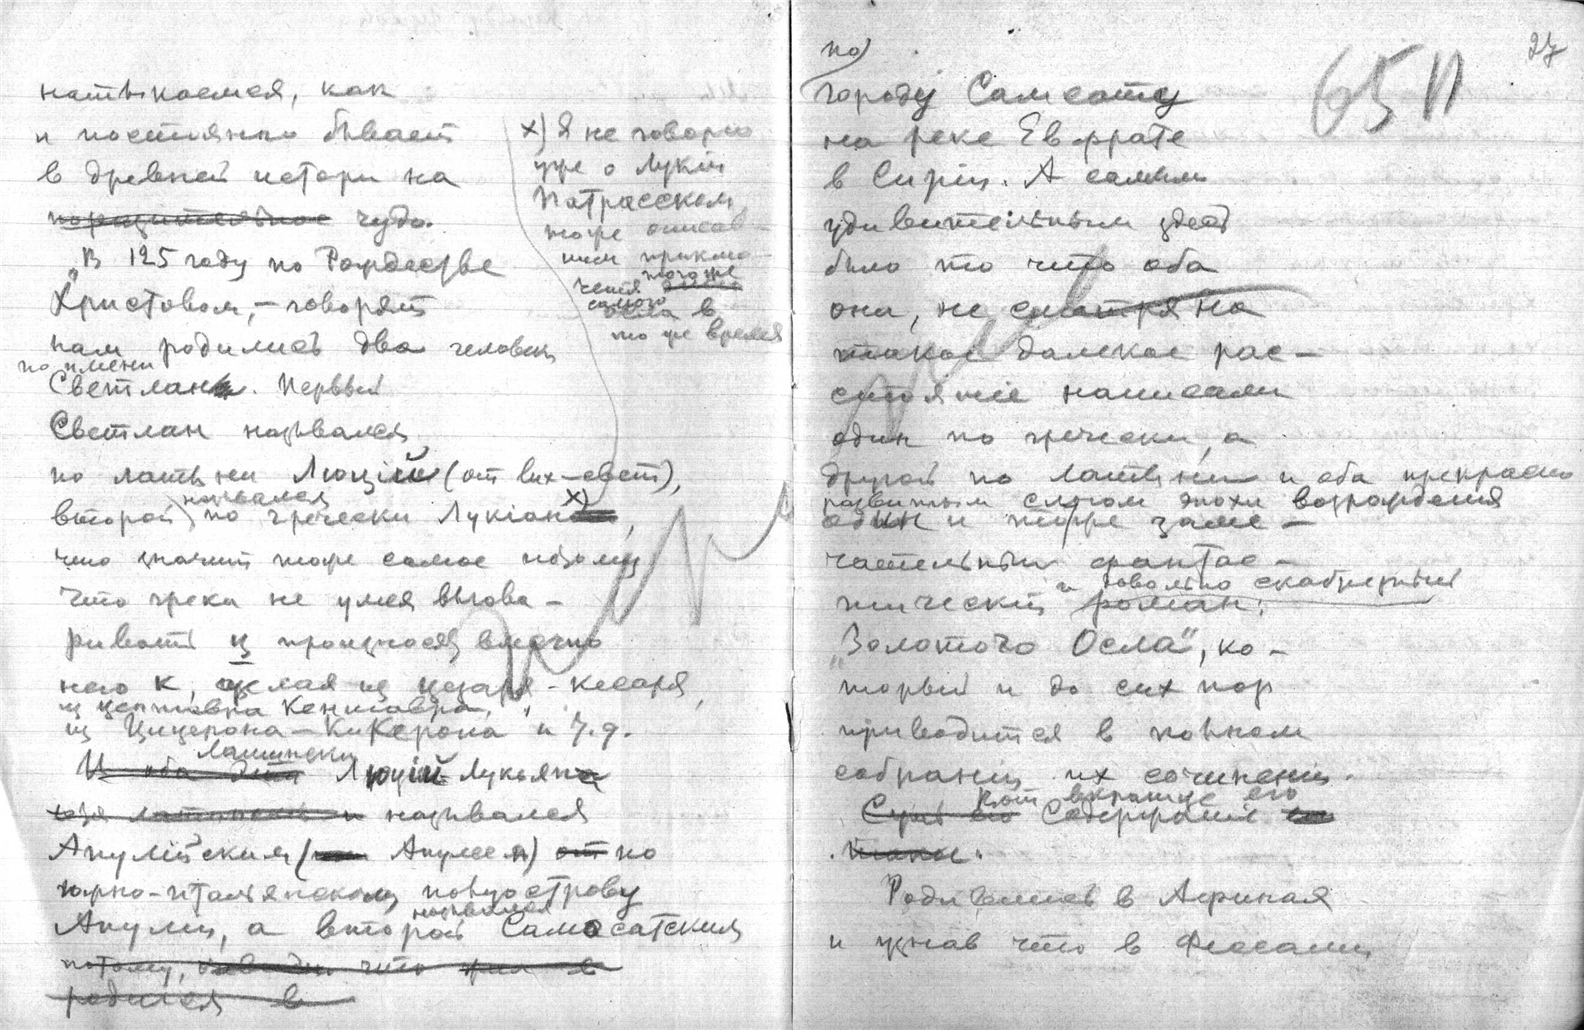 натыкаемся, как
и постоянно бывает
в древней истори на
поразительное чудо.
„В 125 году по Рождестве
Христовом, – говорят
нам родились два человек
по имени
Светлан. Первый
Светлан назывался
по латыни Люцій (от lux – свет),
назывался
второй по гречески Лукіан x)
что значит тоже самое потому
что греки не умея выгова-
ривать ц произносят вместо
него к, делая из цезаря – кесаря,
из центавра Кентавра,
из Цицерона – Кикерона и т.д.
Латински
И оба эти Люцій Лукьян
латинский и назывался
Апулійским (Апулеем) от по
южно-итальянскому полуострову
назывался
Апули, а второй Самосатским
потому, что в
родился в
x) Я не говорю
уже о Лукіи
Патрасском,
тоже описав-
шем приклю-
того же
чения
самого
осла в
то же время
27
65 П
по
городу Самсату
на реке Евфрате
в Сиріи. А самым
удивительным здесь
было то что оба
они, не смотря на
такое далекое рас-
стояніе написали
один по гречески, а
другой по латыни и оба прекрасно
развитым слогом эпохи возрождения
один и тотже заме-
чательный фантас-
и довольно скабрезный
тическій роман:
„Золотого Осла", ко-
торый и до сих пор
приводится в полном
собраніи их сочиненій.
Вот вкратце его
Содержаніе
Родившись в Африкая
и узнав что в Фессаліи